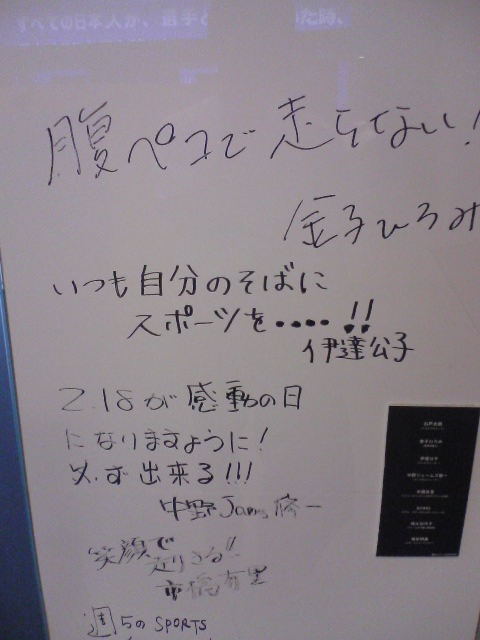 すべての日本人が、選手と
た時、
腹ペコで走らない!
金子ひろみ
いつも自分のそばに
スポーツを・・・・!!
伊達公子
2.18が感動の日
になりますように!
必ず出来る!!!
中野James修一
笑顔で
走りきる!!
市橋有里
週5のSPORTS